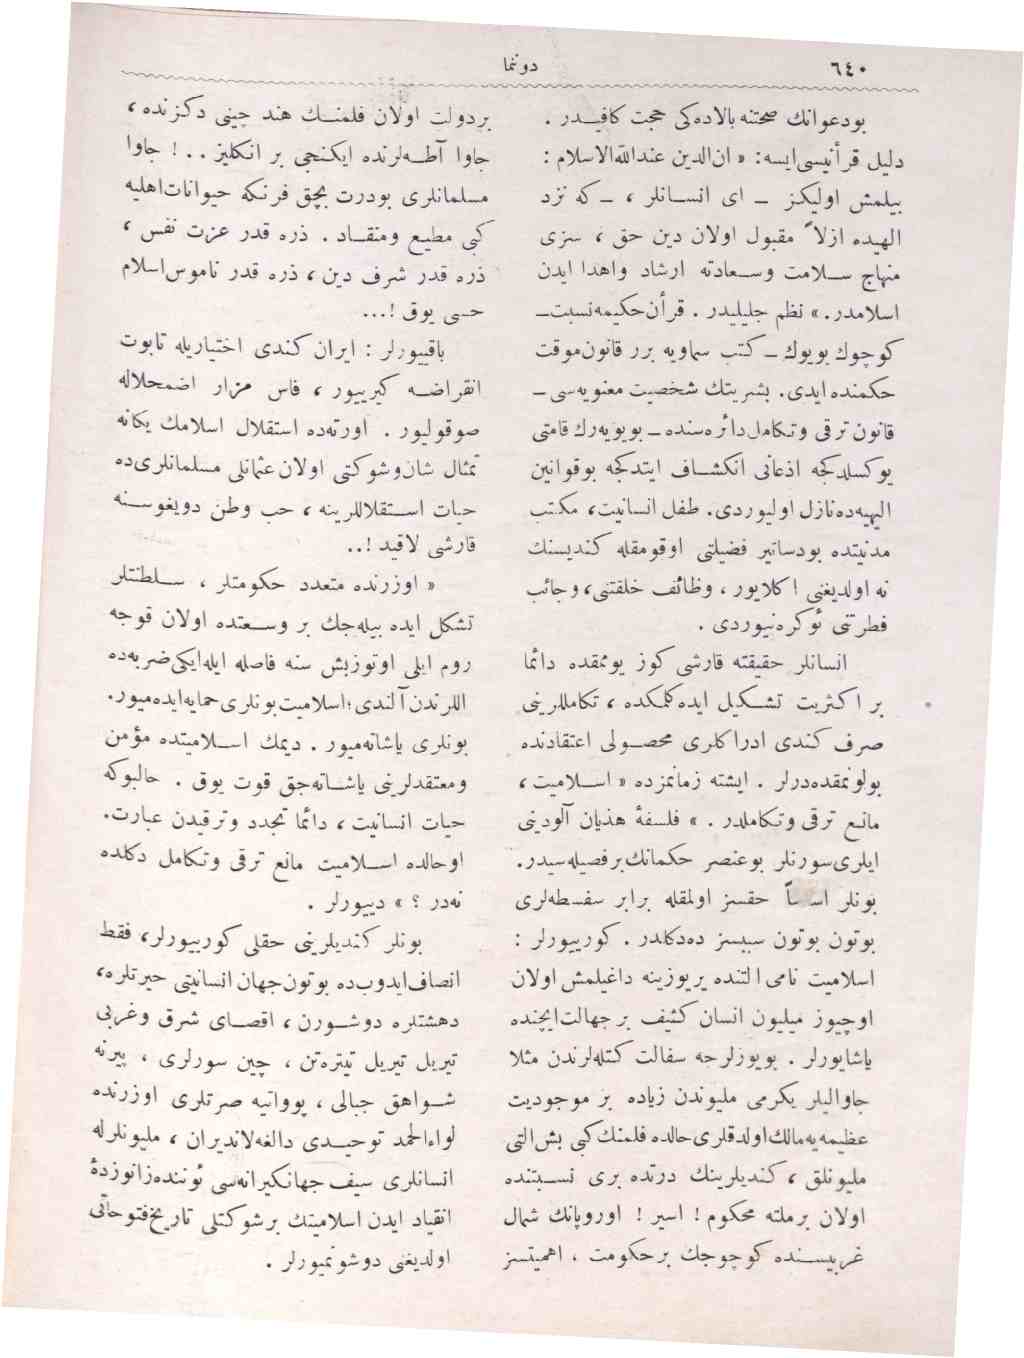 ٦٤٠
دوننما
بودعوانك صحتنه بالاده‌كی حجت كافیـدر .
دلیل قرآنیسی ایسه: « ان‌الدین عندالله‌الاسلام :
بیلمش اولیكز ـ ای انسـانلر ، ـ كه نزد
الهیده ازلاً مقبول اولان دین حق ، سزی
منهاج سـلامت وسـعادته ارشاد واهدا ایدن
اسلامدر.» نظم جلیلیدر . قرآن‌حكیمه‌نسبت ـ
كوچوك بویوك ـ كتب سماویه برر قانون‌موقت
حكمنده ایدی. بشریتك شخصیت معنویه‌سی ـ
قانون ترقی وتكامل‌دائره‌سنده ـ بویویه‌رك قامتی
یوكسلدكجه اذعانی انكشـاف ایتدكجه بوقوانین
الهیه‌ده نازل اولیوردی. طفل انسانیت، مكتب
مدنیتده بودساتیر فضیلتی اوقومقله كندیسنك
نه اولدیغنی اكلایور ، وظائف خلقتنی، وجائب
فطرتنی ئوكره‌نیوردی .
انسانلر حقیقته قارشی كوز یوممقده دائما
بر اكثریت تشـكیل ایده‌كلمكده ، تكامللرینی
صرف كندی ادراكلری محصـولی اعتقادنده
بولونمقده‌درلر . ایشته زمانمزده « اسـلامیت ،
مانـع ترقی وتكاملدر . » فلسفهٔ هذیان آلودینی
ایلری‌سورنلر بوعنصر حكمانك‌برفصیله‌سیدر.
بونلر اساساً حقسز اولمقله برابر سفسطه‌لری
بوتون بوتون سببسز ده‌دكلدر . كوریپورلر :
اسلامیت نامی التنده یریوزینه داغیلمش اولان
اوچیوز میلیون انسان كثیف برجهالت‌ایچنده
یاشایورلر . بویوزلرجه سفالت كتله‌لرندن مثلا
جاوالیلر یكرمی ملیوندن زیاده بر موجودیت
عظیمه‌یه‌مالك‌اولدقلری‌حالده فلمنك كبی بش‌التی
ملیونلق ، كندیلرینك درتده بری نسـبتنده
اولان برملته محكوم ! اسیر ! اوروپانك شمال
غربیسـنده كوچوجك برحكومت ، اهمیتسز
بردولت اولان فلمنـك هند چینی دكزنده ،
جاوا آطـه‌لرنده ایكنجی بر انكلیز .. ! جاوا
مسلمانلری بودرت بچق فرنكه حیوانات‌اهلیه
كبی مطیع ومنقـاد . ذره قدر عزت نفس ،
ذره قدر شرف دین ، ذره قدر ناموس‌اسلام
حـسی یوق !...
باقییورلر : ایران كندی اختیاریله تابوت
انقراضـه كیرییور ، فاس مزار اضمحلاله
صوقولیور . اورته‌ده استقلال اسلامك یكانه
تمثال شان‌وشوكتی اولان عثمانلی مسلمانلری‌ده
حیات اسـتقلاللرینه ، حب وطن دویغوسـنه
قارشی لاقید !..
« اوزرنده متعدد حكومتلر ، سـلطنتلر
تشكل ایده بیله‌جك بر وسـعتده اولان قوجه
روم ایلی اوتوزبش سنه فاصله ایله‌ایكی‌ضربه‌ده
اللرندن آلندی؛اسلامیت‌بونلری‌حمایه‌ایده‌میور.
بونلری یاشاته‌میور . دیمك اسـلامیتده مؤمن
ومعتقدلرینی یاشـاته‌جق قوت یوق . حالبوكه
حیات انسانیت ، دائما تجدد وترقیدن عبارت.
اوحالده اسـلامیت مانع ترقی وتكامل دكلده
نه‌در ؟ » دییورلر .
بونلر كندیلرینی حقلی كوریپورلر، فقط
انصاف‌ایدوب‌ده بوتون‌جهان انسانیتی حیرتلره،
دهشتلره دوشـورن ، اقصـای شرق وغربی
تیریل تیریل تیتره‌تن ، چین سورلری ، پیرنه
شـواهق جبالی ، پوواتیه صرتلری اوزرنده
لواءالحمد توحیـدی دالغه‌لاندیران ، ملیونلرله
انسانلری سیف جهانكیرانه‌سی ئوننده‌زانوزدهٔ
انقیاد ایدن اسلامیتك برشوكتلی تاریخ‌فتوحاتی
اولدیغنی دوشونمیورلر .